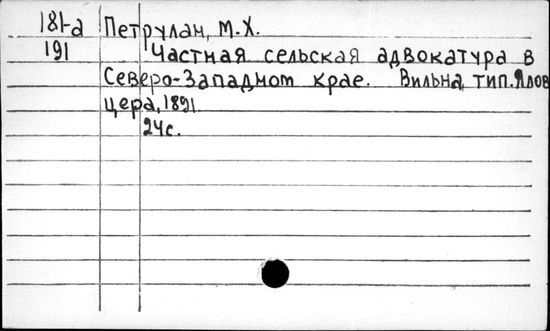 181-а Петрулан, М.Х.
191 Частная сельская адвокатура в
Северо-Западном крае. Вильна, тип. Ялов
цера, 1891.
24с.